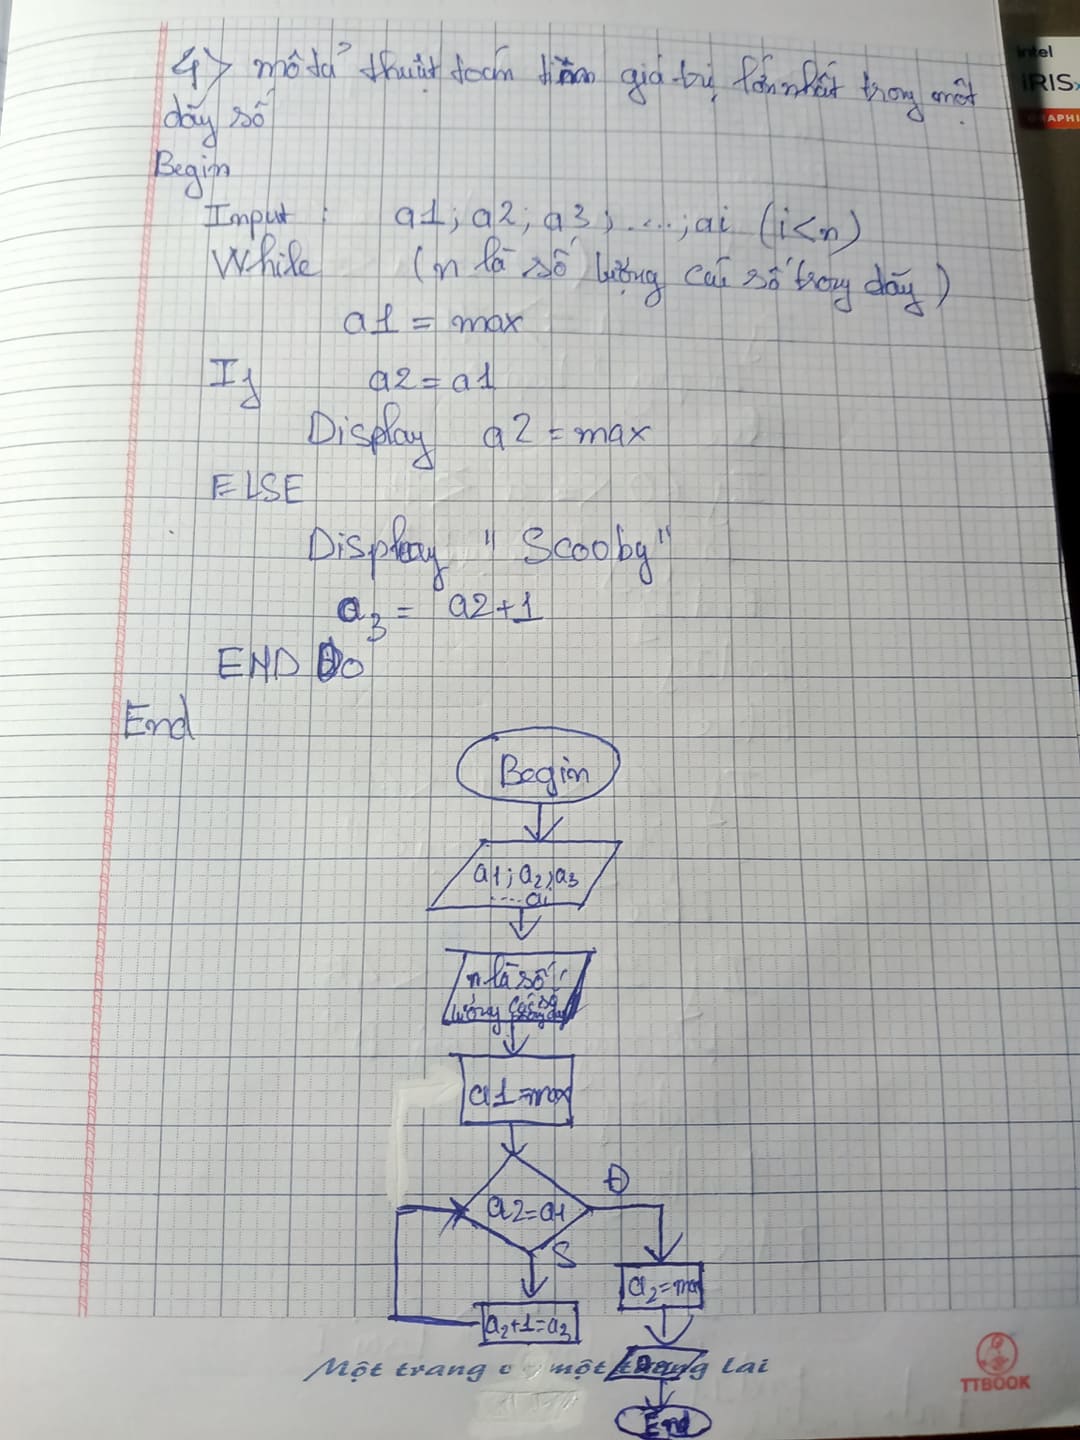 4> mô tả thuật toán tìm giá trị lớn nhất trong một
dãy số
Begin
Input : a1; a2; a3; ....; ai (i<n)
While (n là số lượng các số trong dãy)
a1 = max
If a2 = a1
Display a2 = max
ELSE
Display "Scooby"
a3 = a2+1
END DO
End
Begin
a1; a2; a3
.... ai
n là số
lượng các số
trong dãy
a1 = max
a2 = a1
Đ
S
a2 = max
a2+1 = a3
End
Một trang một lai
TTBOOK
intel
IRIS